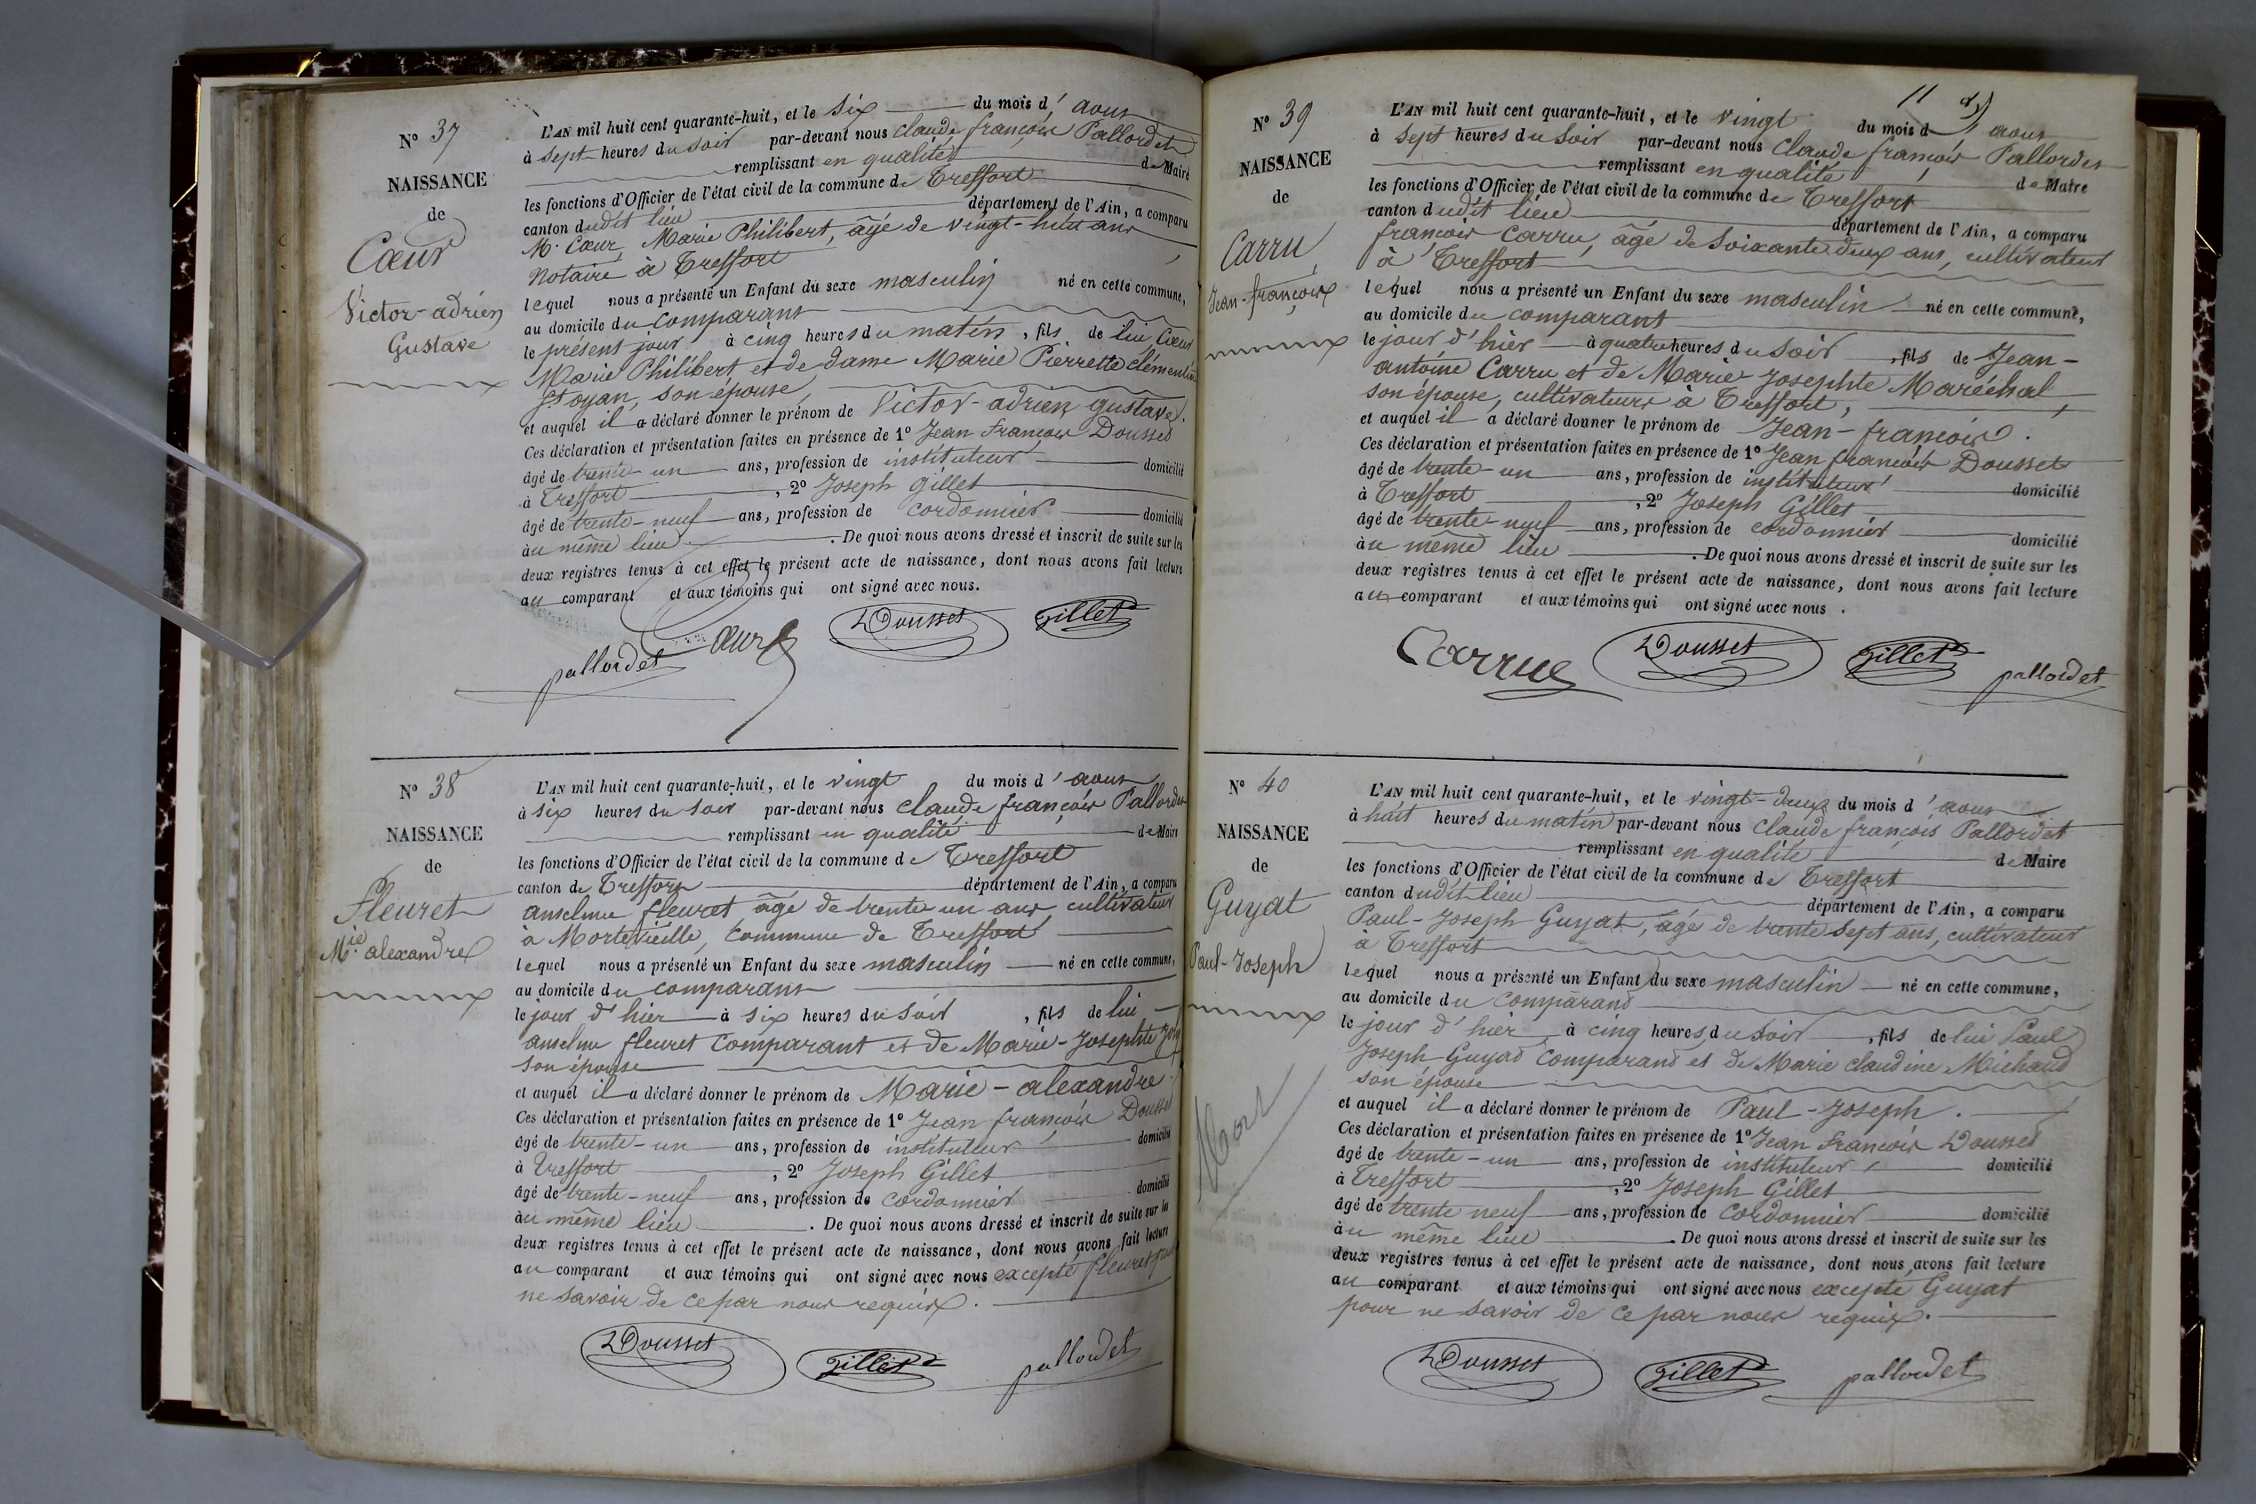 N° 37
NAISSANCE
de
Cœur
Victor-adrien
Gustave
L'AN mil huit cent quarante-huit, et le six du mois d'aout
à sept heures du soir par-devant nous claude françois Pallordet
remplissant en qualité de Maire
les fonctions d'Officier de l'état civil de la commune de Treffort
canton dudit lieu département de l'Ain, a comparu
M. Cœur, Marie Philibert, âgé de vingt-huit ans
Notaire à Treffort
lequel nous a présenté un Enfant du sexe masculin né en cette commune,
au domicile du comparant
le présent jour à cinq heures du matin, fils de lui Cœur
Marie Philibert et de dame Marie Pierrette clémentine
son épouse,
et auquel il a déclaré donner le prénom de Victor-adrien gustave.
Ces déclaration et présentation faites en présence de 1° Jean François Dousset
âgé de trente-un ans, profession de instituteur domicilié
à Treffort, 2° Joseph Gillet
âgé de trente-neuf ans, profession de cordonnier domicilié
àu même lieu. De quoi nous avons dressé et inscrit de suite sur les
deux registres tenus à cet effet le présent acte de naissance, dont nous avons fait lecture
au comparant et aux témoins qui ont signé avec nous.
Cœur Dousset Gillet
pallordet
N° 38
NAISSANCE
de
Fleuret
Mie alexandre
L'AN mil huit cent quarante-huit, et le vingt du mois d'aout
à six heures du soir par-devant nous claude françois Pallordet
remplissant en qualité de Maire
les fonctions d'Officier de l'état civil de la commune de Treffort
canton de Treffort département de l'Ain, a comparu
anselme fleuret âgé de trente un ans, cultivateur
à Mortevieille, commune de Treffort
lequel nous a présenté un Enfant du sexe masculin né en cette commune,
au domicile du comparant
le jour d'hier à six heures du soir, fils de lui
anselme fleuret comparant et de Marie-Josephte
son épouse
et auquel il a déclaré donner le prénom de Marie-alexandre.
Ces déclaration et présentation faites en présence de 1° Jean françois Dousset
âgé de trente-un ans, profession de instituteur domicilié
à Treffort, 2° Joseph Gillet
âgé de trente-neuf ans, profession de cordonnier domicilié
àu même lieu. De quoi nous avons dressé et inscrit de suite sur les
deux registres tenus à cet effet le présent acte de naissance, dont nous avons fait lecture
au comparant et aux témoins qui ont signé avec nous excepté fleuret pour
ne savoir de ce par nous requis.
Dousset Gillet pallordet
11
N° 39
NAISSANCE
de
Carru
Jean-françois
L'AN mil huit cent quarante-huit, et le vingt du mois d'aout
à sept heures du soir par-devant nous claude françois Pallordet
remplissant en qualité de Maire
les fonctions d'Officier de l'état civil de la commune de Treffort
canton dudit lieu département de l'Ain, a comparu
françois Carru, âgé de soixante deux ans, cultivateur
à Treffort
lequel nous a présenté un Enfant du sexe masculin né en cette commune,
au domicile du comparant
le jour d'hier à quatre heures du soir, fils de Jean-
antoine Carru et de Marie Josephte Maréchal,
son épouse, cultivateurs à Treffort,
et auquel il a déclaré donner le prénom de Jean-françois.
Ces déclaration et présentation faites en présence de 1° Jean françois Dousset
âgé de trente-un ans, profession de instituteur domicilié
à Treffort, 2° Joseph Gillet
âgé de trente-neuf ans, profession de cordonnier domicilié
àu même lieu. De quoi nous avons dressé et inscrit de suite sur les
deux registres tenus à cet effet le présent acte de naissance, dont nous avons fait lecture
au comparant et aux témoins qui ont signé avec nous.
Carrue Dousset Gillet pallordet
N° 40
NAISSANCE
de
Guyat
Paul-Joseph
Mort
L'AN mil huit cent quarante-huit, et le vingt-deux du mois d'aout
à huit heures du matin par-devant nous claude françois Pallordet
remplissant en qualité de Maire
les fonctions d'Officier de l'état civil de la commune de Treffort
canton dudit lieu département de l'Ain, a comparu
Paul-Joseph Guyat, âgé de trente sept ans, cultivateur
à Treffort
lequel nous a présenté un Enfant du sexe masculin né en cette commune,
au domicile du comparand
le jour d'hier à cinq heures du soir, fils de lui Paul
Joseph Guyat comparand et de Marie claudine Michaud
son épouse
et auquel il a déclaré donner le prénom de Paul-Joseph.
Ces déclaration et présentation faites en présence de 1° Jean françois Dousset
âgé de trente-un ans, profession de instituteur domicilié
à Treffort, 2° Joseph Gillet
âgé de trente neuf ans, profession de cordonnier domicilié
àu même lieu. De quoi nous avons dressé et inscrit de suite sur les
deux registres tenus à cet effet le présent acte de naissance, dont nous avons fait lecture
au comparant et aux témoins qui ont signé avec nous excepté Guyat
pour ne savoir de ce par nous requis.
Dousset Gillet pallordet